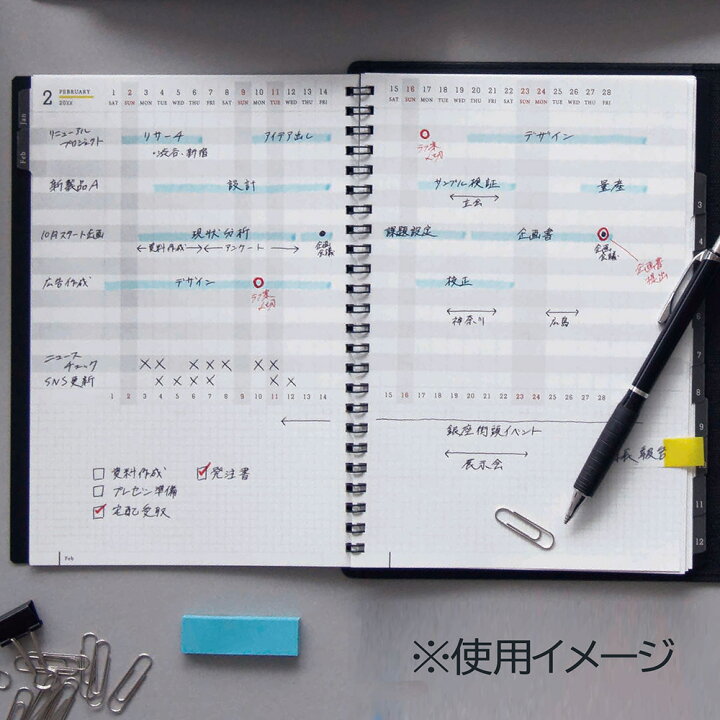 2 FEBRUARY
1 2 3 4 5 6 7 8 9 10 11 12 13 14
SAT SUN MON TUE WED THU FRI SAT SUN MON TUE WED THU FRI
15 16 17 18 19 20 21 22 23 24 25 26 27 28
SAT SUN MON TUE WED THU FRI SAT SUN MON TUE WED THU FRI
Jan
Feb
リニューアル
プロジェクト
リサーチ
アイデア出し
・渋谷、新宿
ラフ案
〆切
デザイン
新製品A
設計
サンプル検証
立会
量産
10月スタート企画
現状分析
資料作成
アンケート
企画
会議
課題設定
企画書
企画
会議
企画書
提出
広告作成
デザイン
ラフ案
〆切
校正
神奈川
広島
ニュース
チェック
×× ××× ××
SNS更新
×××× ××
1 2 3 4 5 6 7 8 9 10 11 12 13 14
15 16 17 18 19 20 21 22 23 24 25 26 27 28
銀座街頭イベント
展示会
資料作成
発注書
プレゼン準備
宅配受取
Feb
3
4
5
6
8
9
11
12
※使用イメージ